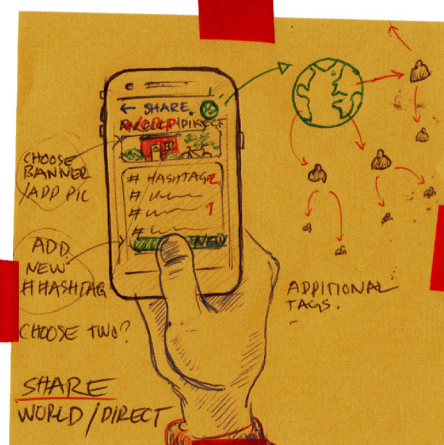 ← SHARE
WORLD/DIRECT
CHOOSE
BANNER
/ADD PIC
# HASHTAG 2
#
# 1
#
NEW
ADD
NEW
#HASHTAG
CHOOSE TWO?
ADDITIONAL
TAGS.
SHARE
WORLD/DIRECT